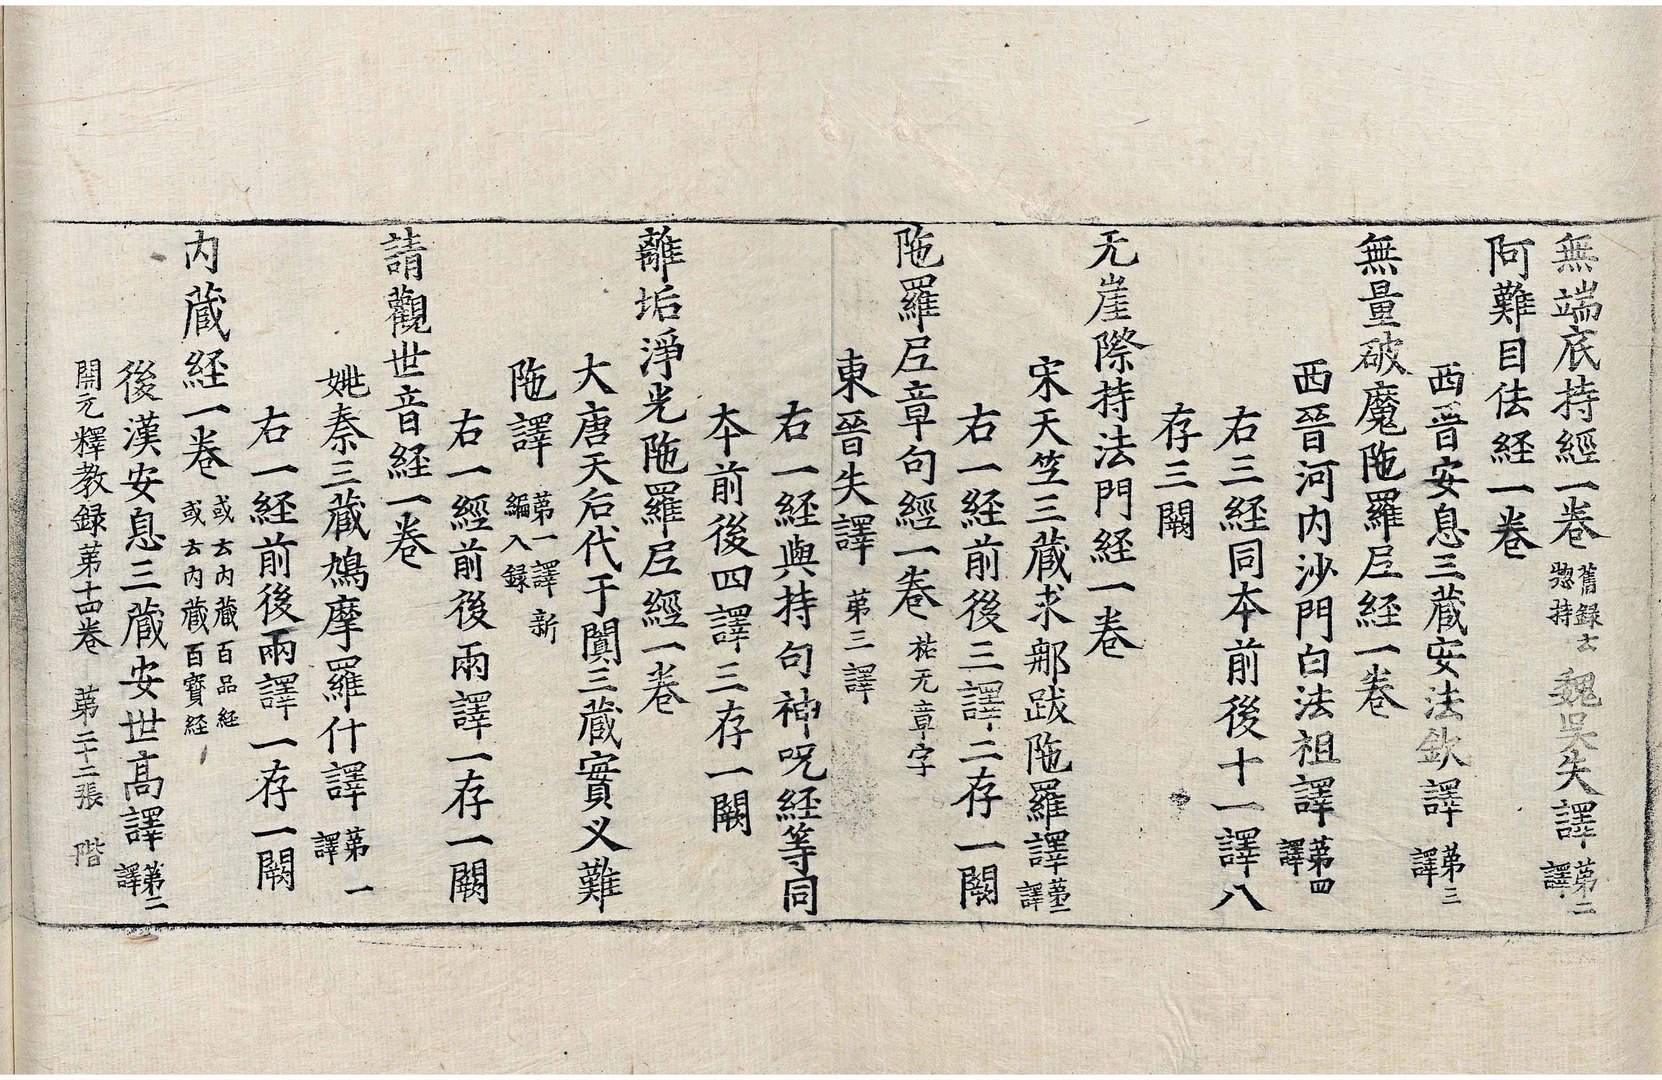 無端底持經一卷 舊録云惣持 魏吳失譯 第二譯
阿難目佉経一卷
西晉安息三藏安法欽譯 第三譯
無量破魔陁羅尼経一卷
西晉河内沙門白法祖譯 第四譯
右三経同本前後十一譯八
存三闕
无崖際持法門経一卷
宋天竺三藏求那跋陁羅譯 第二譯
右一経前後三譯二存一闕
陁羅尼章句經一卷 祐无章字
東晉失譯 第三譯
右一経與持句神呪経等同
本前後四譯三存一闕
離垢淨光陁羅尼經一卷
大唐天后代于闐三藏實叉難
陁譯 第一譯新編入録
右一經前後兩譯一存一闕
請觀世音経一卷
姚秦三藏鳩摩羅什譯 第一譯
右一経前後兩譯一存一闕
内藏経一卷 或云内藏百品経或云内藏百寶経
後漢安息三藏安世高譯 第二譯
開元釋教録第十四卷 第二十二張 階